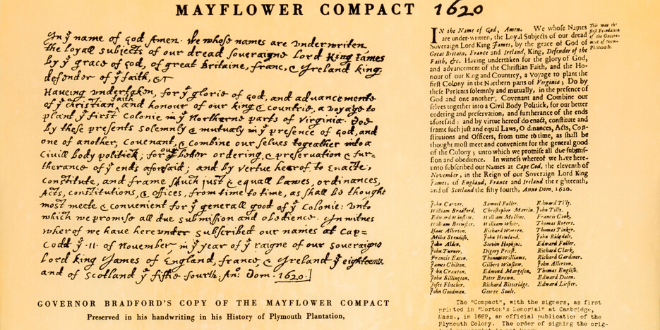 MAYFLOWER COMPACT 1620
In yͤ name of god Amen. We whose names are underwriten,
the loyall subjects of our dread soveraigne lord King James
by yͤ grace of god, of great Britaine, franc, & Ireland king,
defender of yͤ faith, &c
Haveing undertaken, for yͤ glorie of god, and advancemente
of yͤ christian faith and honour of our king & countrie, a voyage to
plant yͤ first Colonie in yͤ Northerne parts of Virginia. Doe
by these presents solemnly & mutualy in yͤ presence of god, and
one of another, Covenant, & combine our selves togeather into a
Civill body politick; for yͤ better ordering, & preservation & fur-
therance of yͤ ends aforesaid; and by vertue hearof to Enacte,
Constitute, and frame shuch just & equall Lawes, ordinances,
Acts, constitutions, & offices, from time to time, as shall be thought
most meete & convenient for yͤ generall good of yͤ Colonie: Unto
which we promise all due submission and obedience. In witnes
wherof we have hereunder subscribed our names at Cap-
Codd yͤ .11. of November in yͤ year of yͤ raigne of our soveraigne
Lord king James of England, france, & Ireland yͤ eighteenth
and of Scotland yͤ fiftie fourth. An͞o: Dom. 1620.
GOVERNOR BRADFORD'S COPY OF THE MAYFLOWER COMPACT
Preserved in his handwriting in his History of Plymouth Plantation,
IN the Name of God, Amen. We whose Names
are under-written, the Loyal Subjects of our dread
Sovereign Lord King James, by the grace of God of
Great Britain, France and Ireland, King, Defender of the
Faith, &c. Having undertaken for the glory of God,
and advancement of the Christian Faith, and the Ho-
nour of our King and Countrey, a Voyage to plant the
first Colony in the Northern parts of Virginia; Do by
these Presents solemnly and mutually, in the presence of
God and one another, Covenant and Combine our
selves together into a Civil Body Politick, for our better
ordering and preservation, and furtherance of the ends
aforesaid: and by virtue hereof do enact, constitute and
frame such just and equal Laws, Ordinances, Acts, Con-
stitutions and Officers, from time to time, as shall be
thought most meet and convenient for the general good
of the Colony; unto which we promise all due submis-
sion and obedience. In witness whereof we have here-
unto subscribed our Names at Cape Cod, the eleventh of
November, in the Reign of our Sovereign Lord King
James, of England, France and Ireland the eighteenth,
and of Scotland the fifty fourth, Anno Dom. 1620.
John Carver, Samuel Fuller, Edward Tilly,
William Bradford, Christopher Martin, John Tilly,
Edward Winslow, William Mullins, Francis Cook,
William Brewster, William White, Thomas Rogers,
Isaac Allerton, Richard Warren, Thomas Tinker,
Miles Standish, John Howland, John Ridgdale,
John Alden, Steven Hopkins, Edward Fuller,
John Turner, Digery Priest, Richard Clark,
Francis Eaton, Thomas Williams, Richard Gardiner,
James Chilton, Gilbert Winslow, John Allerton,
John Craxton, Edmund Margeson, Thomas English,
John Billington, Peter Brown, Edward Doten,
Joses Fletcher, Richard Bitteridge, Edward Liester,
John Goodman, George Soule,
The "Compact", with the signers, as first
printed in "Morton's Memorial" at Cambridge,
Mass., in 1669, an official publication of the
Plymouth Colony. The order of signing the orig-